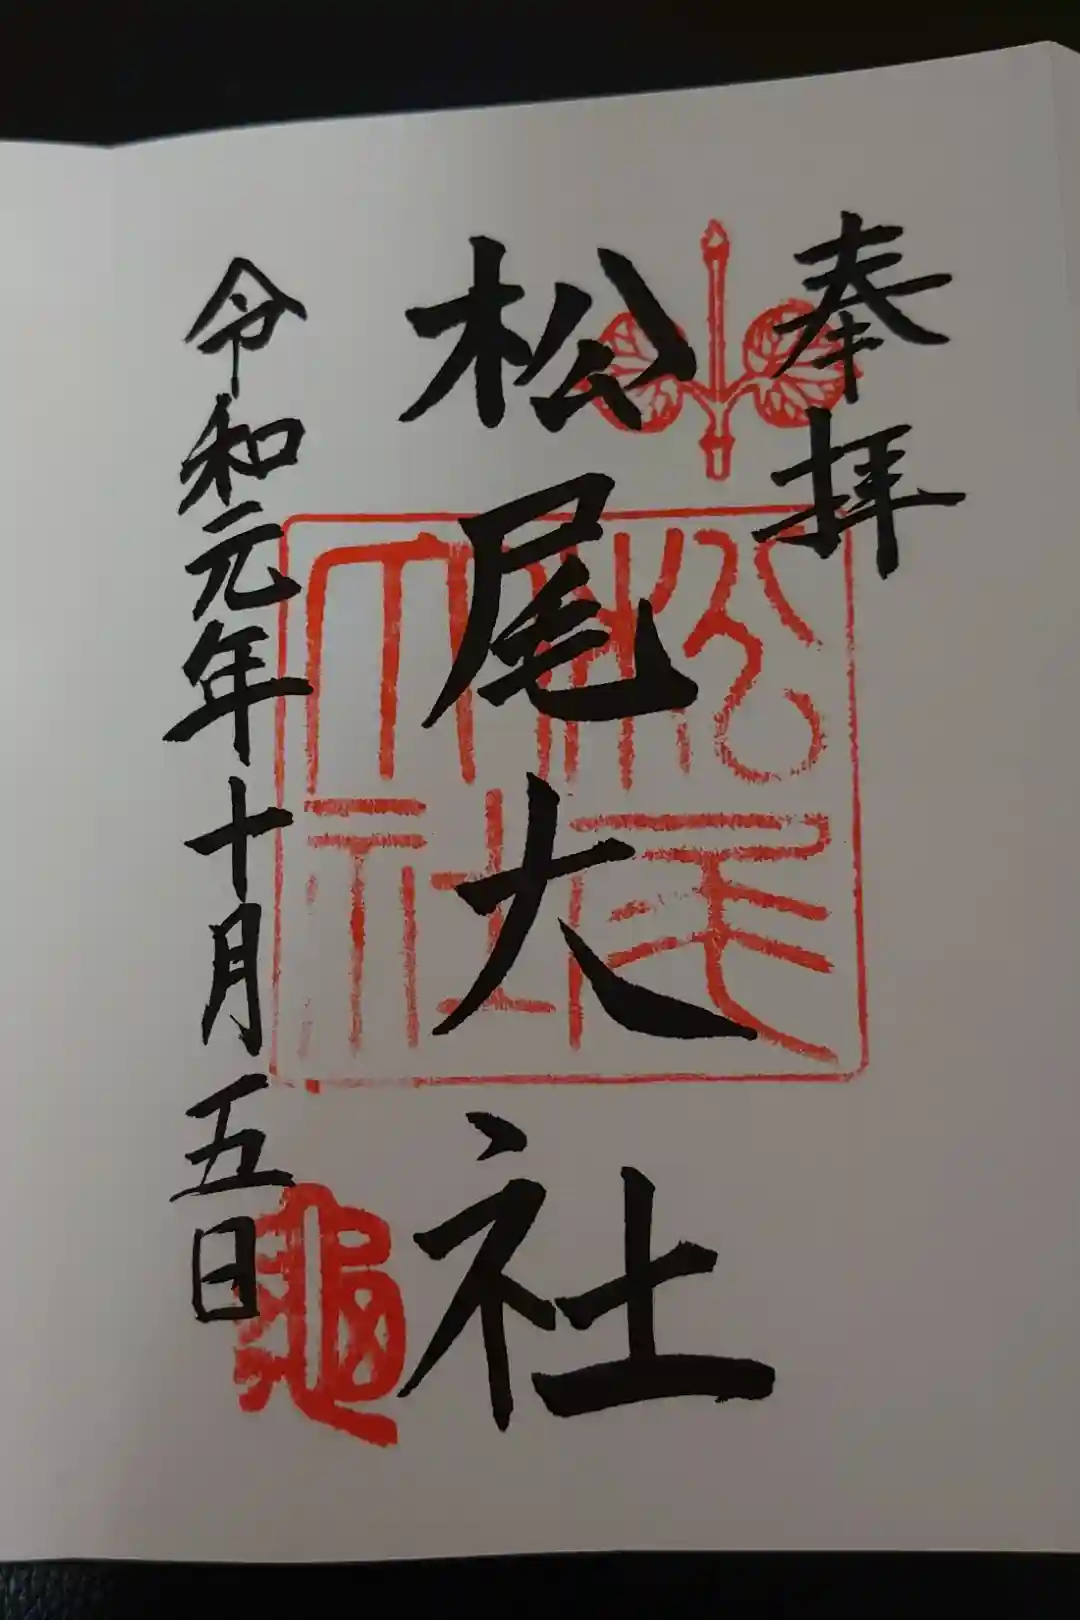 奉拝
松尾大社
令和元年十月五日
松尾大社
亀